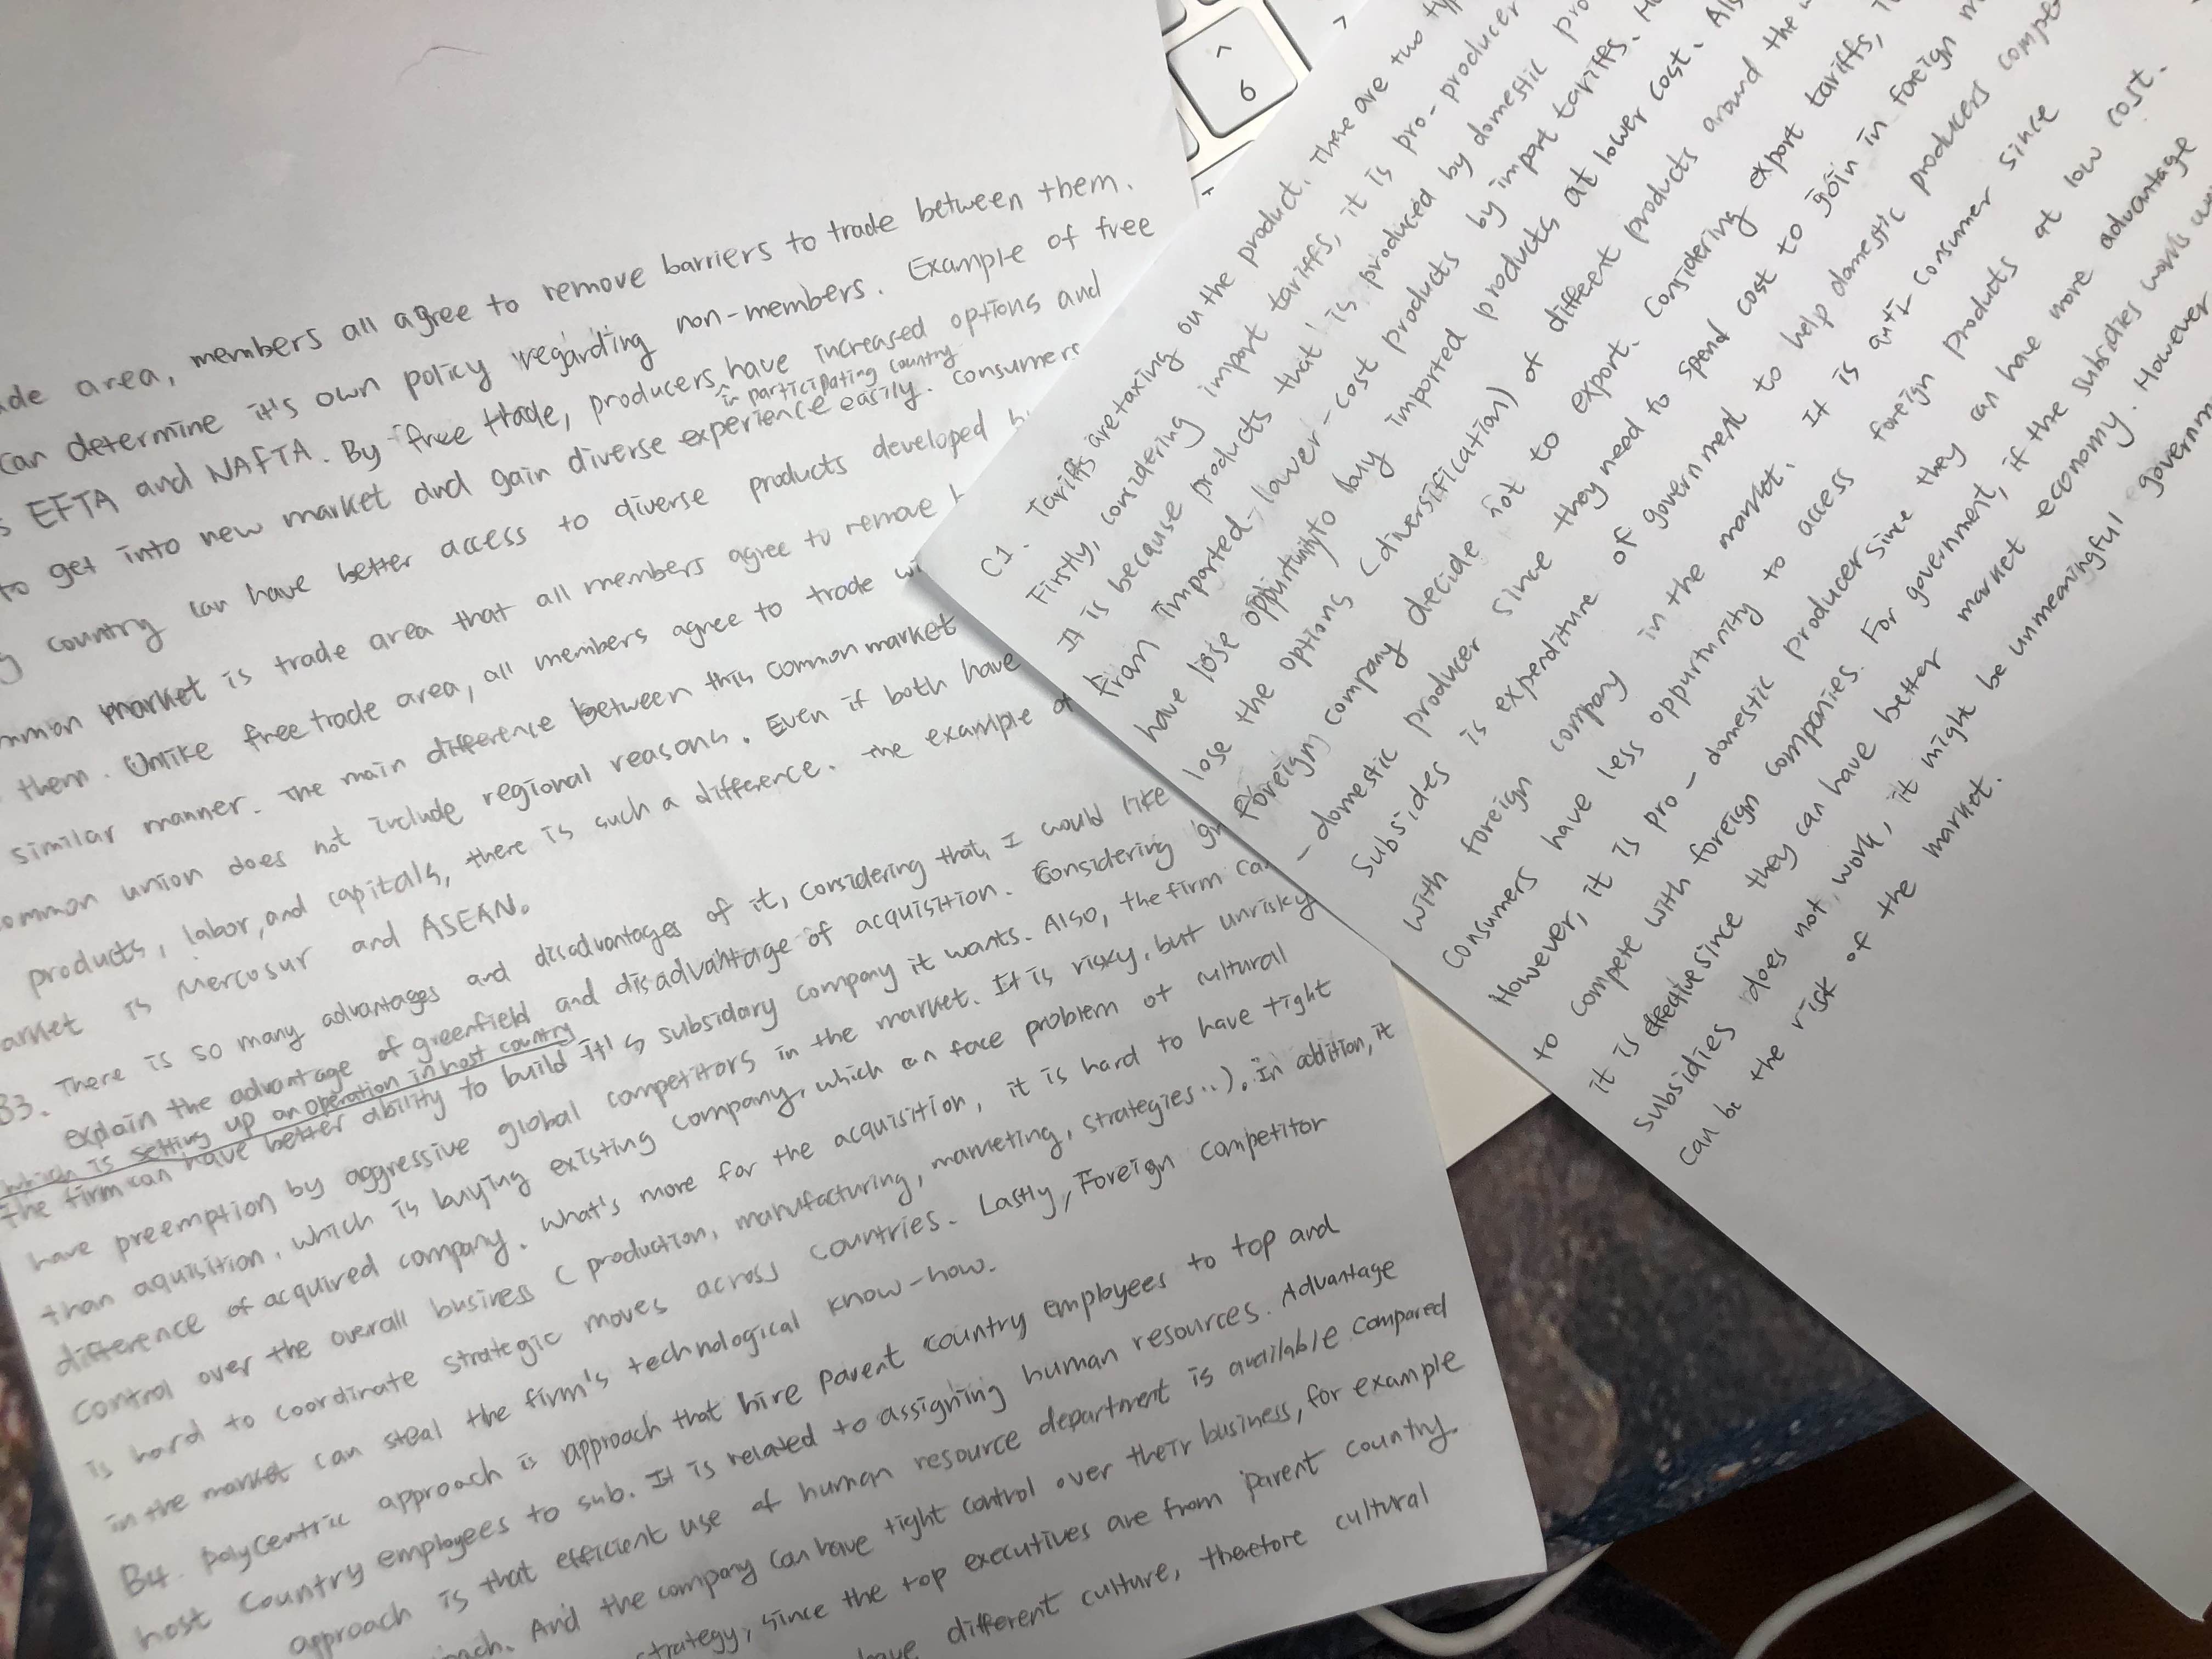 de area, members all agree to remove barriers to trade between them.
can determine it's own policy regarding non-members. Example of free
EFTA and NAFTA. By free trade, producers have increased options and
in participating country
to get into new market and gain diverse experience easily. consumers
country can have better access to diverse products developed
mmon market is trade area that all members agree to remove
them. Unlike free trade area, all members agree to trade wi
similar manner. The main difference between this common market
ommon union does not include regional reasons. Even if both have
products, labor, and capitals, there is such a difference. The example of
arket is Mercosur and ASEAN.
B3. There is so many advantages and disadvantages of it, considering that, I would like
explain the advantage of greenfield and disadvantage of acquisition. Considering gr
which is setting up an operation in host country
The firm can have better ability to build it's subsidary company it wants. Also, the firm ca
have preemption by aggressive global competitors in the market. It is risky, but unrisky
than aquisition, which is buying existing company, which can face problem of cultural
difference of acquired company. What's more for the acquisition, it is hard to have tight
control over the overall business (production, manufacturing, marketing, strategies..). In addition, it
is hard to coordinate strategic moves across countries. Lastly, Foreign competitor
in the market can steal the firm's technological know-how.
B4. Polycentric approach is approach that hire parent country employees to top and
host country employees to sub. It is related to assigning human resources. Advantage
approach is that efficient use of human resource department is available compared
ach. And the company can have tight control over their business, for example
strategy, since the top executives are from parent country.
have different culture, therefore cultural
6
C1. Tariffs are taxing on the product. There are two typ
Firstly, considering import tariffs, it is pro-producer
It is because products that is produced by domestic pro
than imported, lower-cost products by import tariffs.
have lose oppurtunity to buy imported products at lower cost. Als
lose the options (diversification) of different products around the w
foreign company decide not to export. Considering export tariffs,
- domestic producer since they need to spend cost to join in foreign m
Subsides is expenditure of government to help domestic producers compe
with foreign company in the market. It is anti consumer since
consumers have less oppurtunity to access foreign products at low cost.
However, it is pro-domestic producer since they can have more advantage
to compete with foreign companies. For government, if the subsidies works
it is effective since they can have better market economy. However
subsidies does not work, it might be unmeaningful governm
can be the risk of the market.